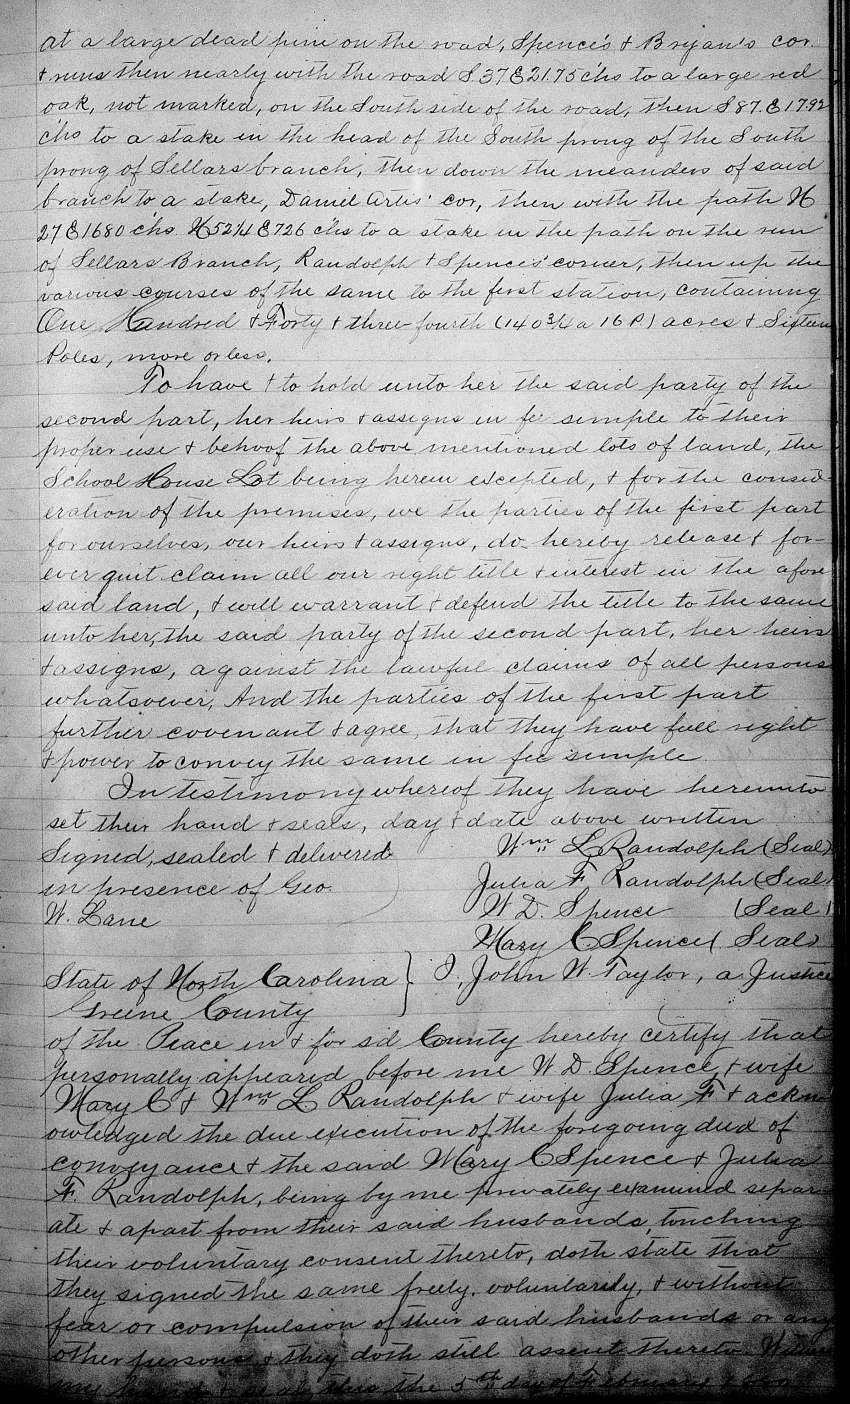 at a large dead pine on the road, Spence's & Bryan's cor.
& runs then nearly with the road S 37 E 21.75 chs to a large red
oak, not marked, on the South side of the road, then S 87. E 17.92
chs to a stake in the head of the South prong of the South
prong of Sellars branch, then down the meanders of said
branch to a stake, Daniel Artis' cor, then with the path N
27 E 1680 chs N 52 1/4 E 726 chs to a stake in the path on the run
of Sellars Branch, Randolph & Spences' corner, then up the
various courses of the same to the first station, containing
One Hundred & Forty & three-fourth (140 3/4 a 16 P.) acres & Sixteen
Poles, more or less.
To have & to hold unto her the said party of the
second part, her heirs & assigns in fee simple to their
proper use & behoof the above mentioned lots of land, the
School House Lot being herein excepted, & for the consid-
eration of the premises, we the parties of the first part
for ourselves, our heirs & assigns, do hereby release & for-
ever quit claim all our right title & interest in the afore
said land, & will warrant & defend the title to the same
unto her, the said party of the second part, her heirs
& assigns, against the lawful claims of all persons
whatsoever, And the parties of the first part
further covenant & agree, that they have full right
& power to convey the same in fee simple.
In testimony whereof they have hereunto
set their hand & seals, day & date above written
Signed, sealed & delivered Wm L Randolph (Seal)
in presence of Geo. Julia F Randolph (Seal)
W. Lane W D. Spence (Seal)
Mary C Spence (Seal)
State of North Carolina } I, John W. Taylor, a Justice
Greene County
of the Peace in & for sd County hereby certify that
personally appeared before me W D. Spence, & wife
Mary C & Wm L Randolph & wife Julia F & ackn
owledged the due execution of the foregoing deed of
conveyance & the said Mary C Spence & Julia
F. Randolph, being by me privately examined separ-
ate & apart from their said husbands, touching
their voluntary consent thereto, doth state that
they signed the same freely, voluntarily, & without
fear or compulsion of their said husbands or any
other persons & they doth still assent thereto. Witness
my hand & seal this the 5th day of February